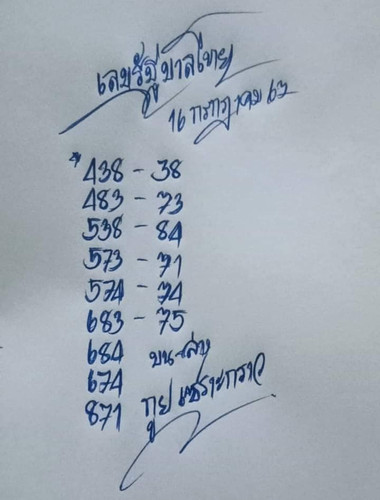 เลขรัฐบาลไทย
16 กรกฎาคม 62
* 438 - 38
483 - 73
538 - 84
573 - 71
574 - 74
683 - 75
684 บน-ล่าง
674
871 กูย เซราะกราว